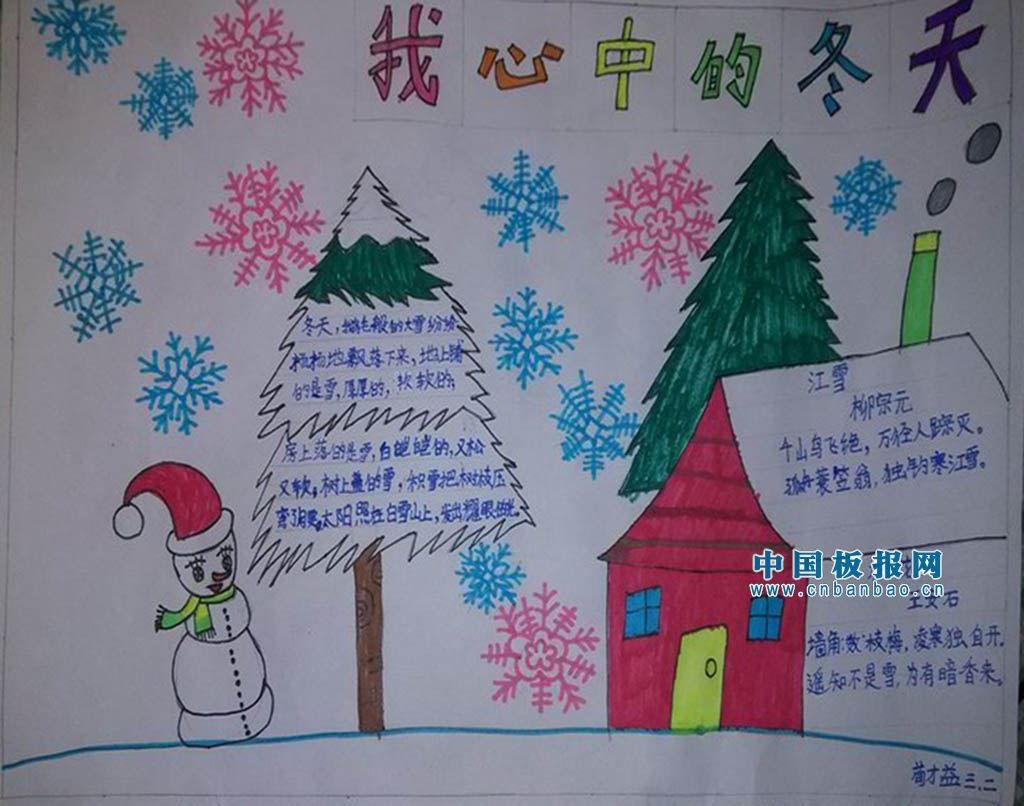 我心中的冬天
冬天，鹅毛般的大雪纷纷
扬扬地飘落下来，地上铺
的是雪，厚厚的，软软的；
房上落的是雪，白皑皑的，又松
又软。树上盖的雪，积雪把树枝压
弯了腰。太阳照在白雪山上，发出耀眼
江雪
柳宗元
千山鸟飞绝，万径人踪灭。
孤舟蓑笠翁，独钓寒江雪。
中国板报网
www.cnbanbao.cn
王安石
墙角数枝梅，凌寒独自开。
遥知不是雪，为有暗香来。
三、二